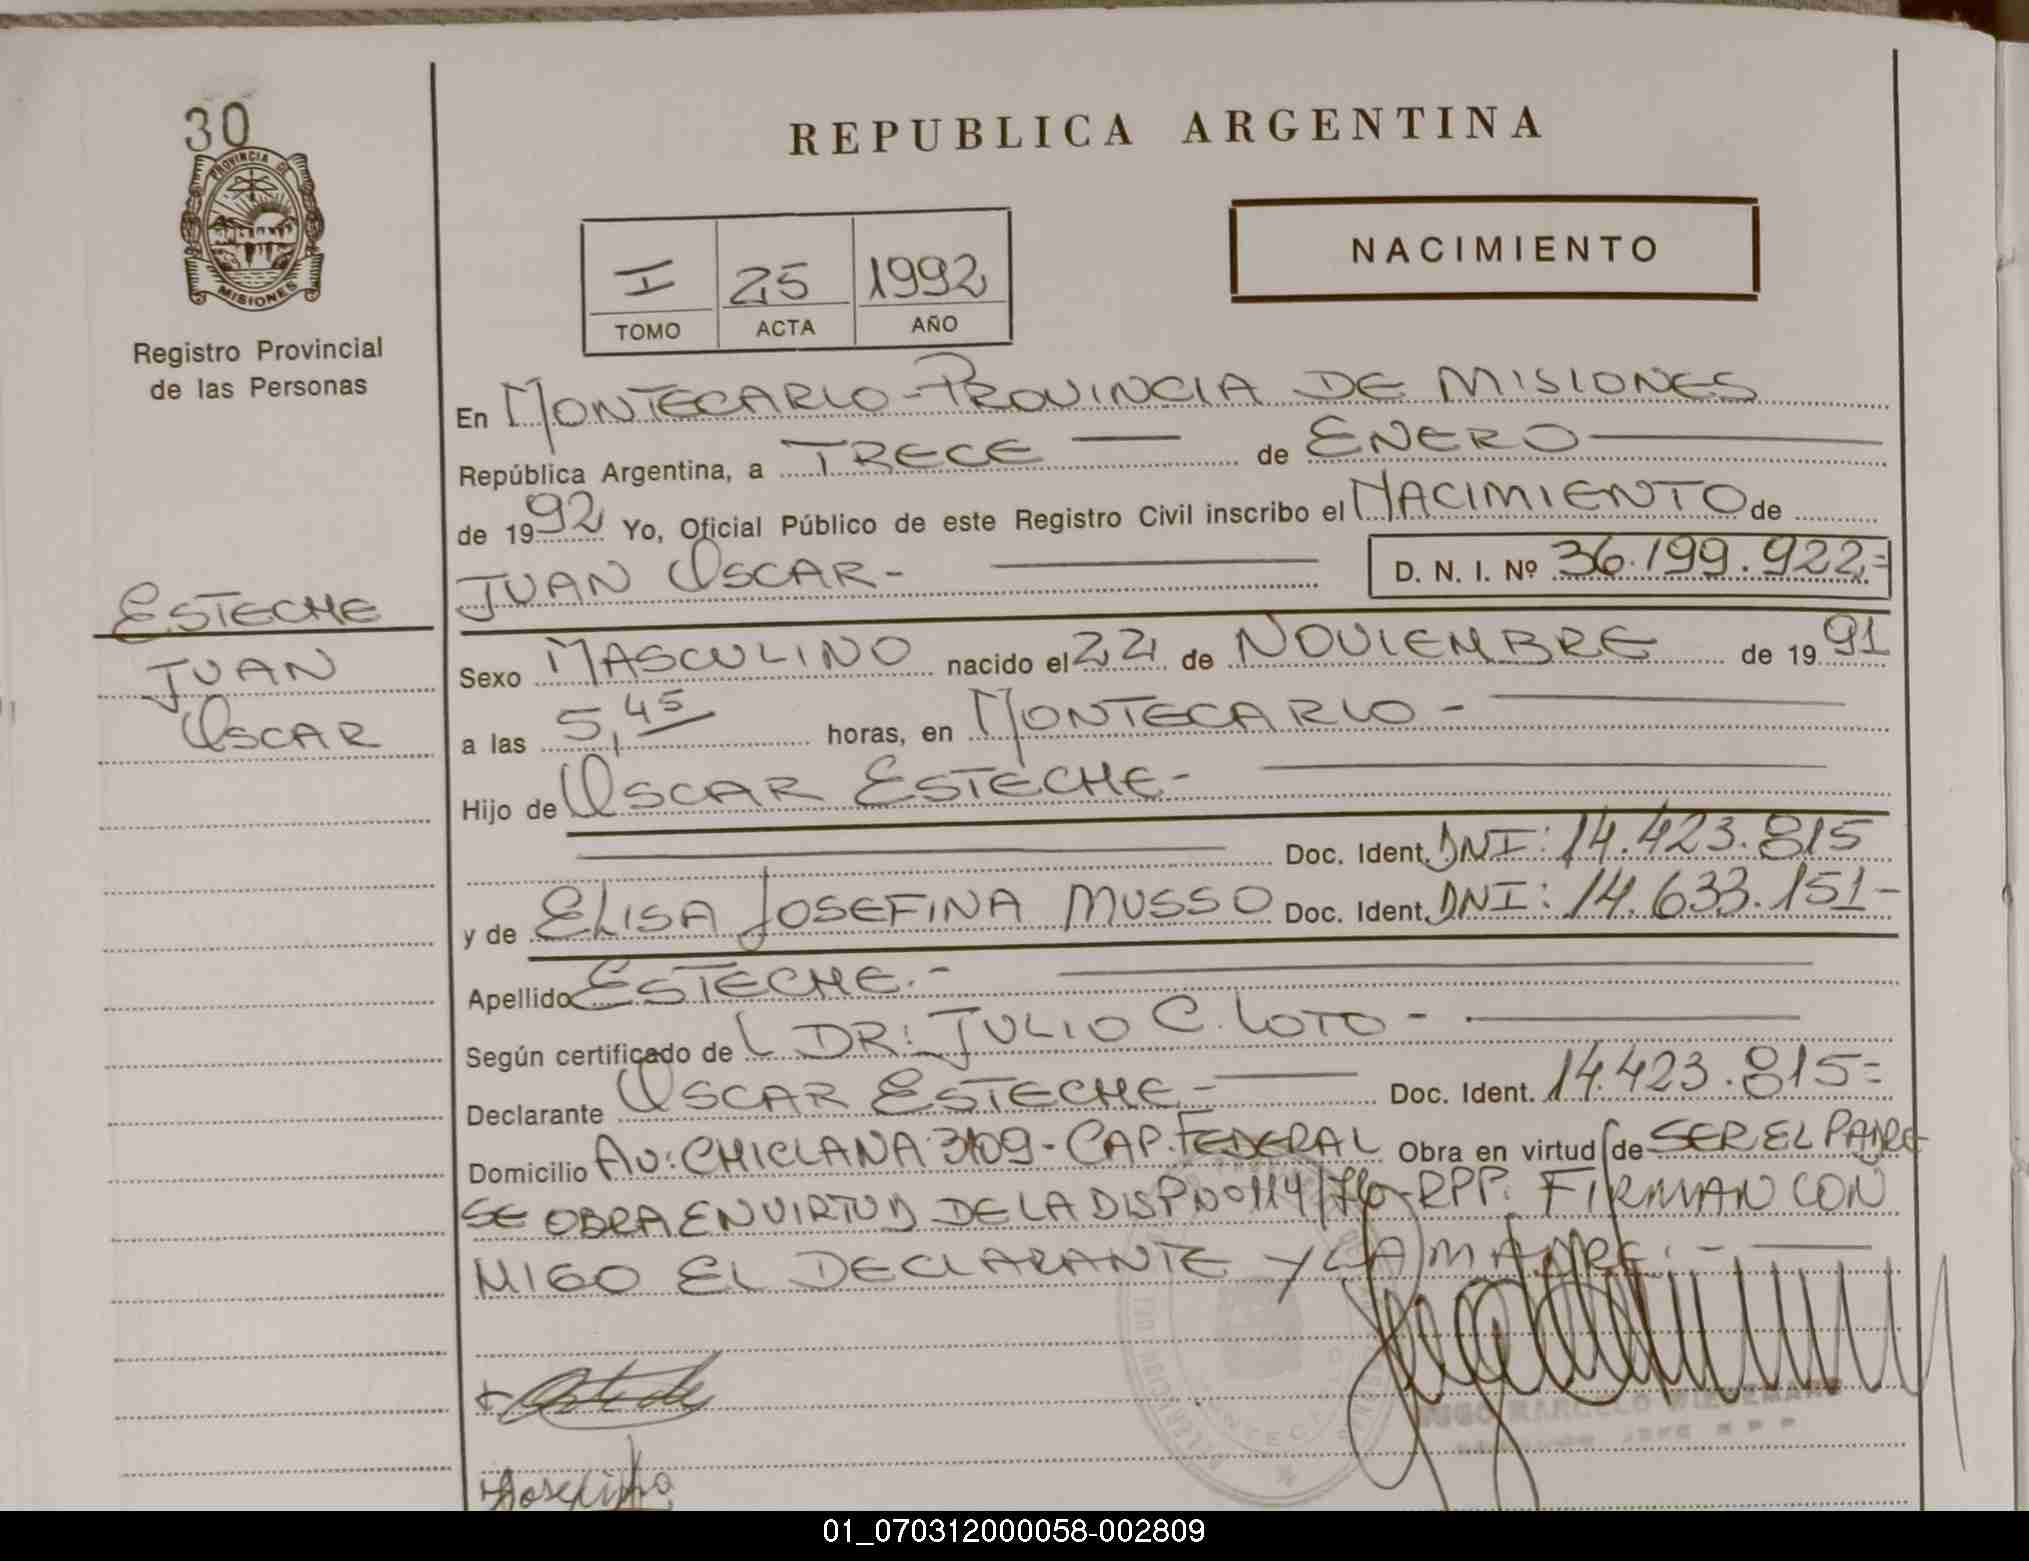 30
PROVINCIA DE
MISIONES
Registro Provincial
de las Personas
REPUBLICA ARGENTINA
I 25 1992
TOMO ACTA AÑO
NACIMIENTO
En MONTECARLO - PROVINCIA DE MISIONES
República Argentina, a TRECE de ENERO
de 1992 Yo, Oficial Público de este Registro Civil inscribo el NACIMIENTO de
JUAN OSCAR- D. N. I. Nº 36.199.922=
ESTECHE
JUAN
OSCAR
Sexo MASCULINO nacido el 22 de NOVIEMBRE de 1991
a las 5,45 horas, en MONTECARLO -
Hijo de OSCAR ESTECHE-
Doc. Ident. DNI: 14.423.815
y de ELISA JOSEFINA MUSSO Doc. Ident. DNI: 14.633.151-
Apellido ESTECHE.-
Según certificado de L DR: JULIO C. LOTO -
Declarante OSCAR ESTECHE- Doc. Ident. 14.423.815=
Domicilio AV: CHICLANA 3109 - CAP. FEDERAL Obra en virtud de SER EL PADRE
SE OBRA EN VIRTUD DE LA DISP Nº 114/76-RPP. FIRMAN CON
MIGO EL DECLARANTE Y LA MADRE.-
HUGO MARCELO WIEDEMANN
Josefina
01_070312000058-002809